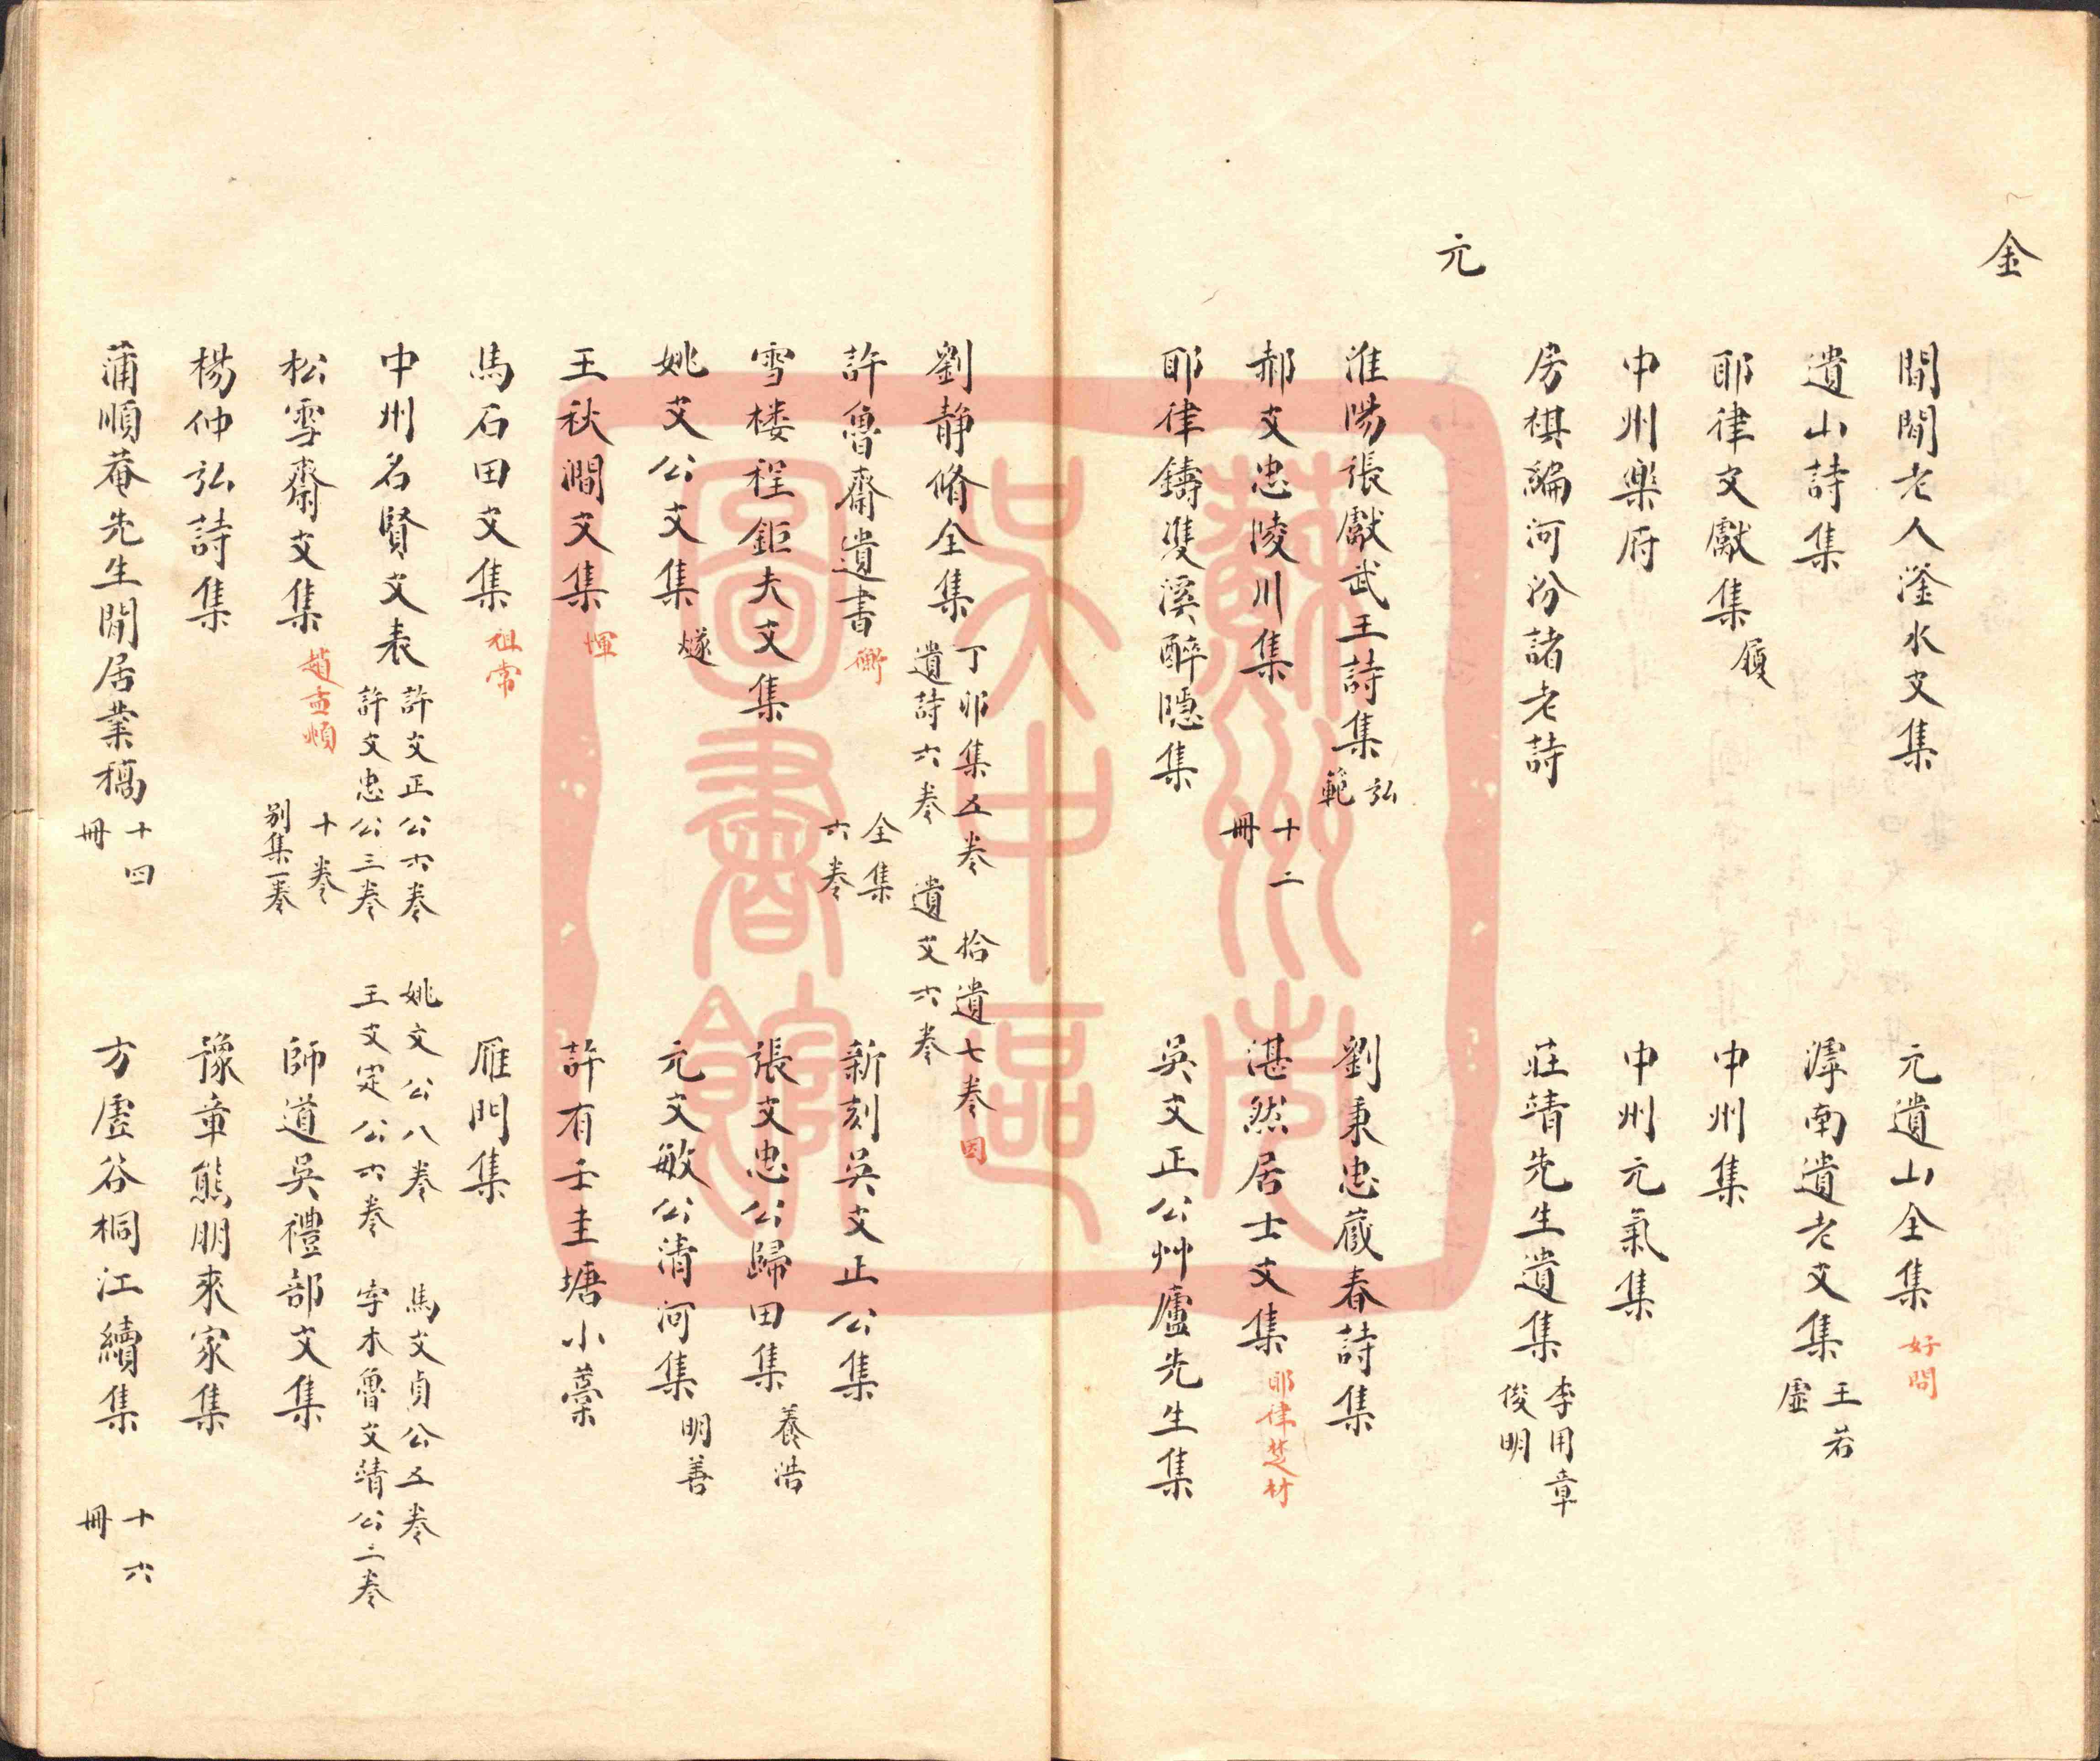 金
閒閒老人滏水文集
元遺山全集 好問
遺山詩集
滹南遺老文集 王若虛
耶律文獻集 履
中州集
中州樂府
中州元氣集
房祺編河汾諸老詩
莊靖先生遺集 李用章俊明
元
淮陽張獻武王詩集 弘範
劉秉忠蔵春詩集
郝文忠陵川集 十二冊
湛然居士文集 耶律楚材
耶律鑄雙溪醉隱集
吳文正公艸廬先生集
劉静脩全集 丁卯集五卷 遺詩六卷 拾遺七卷 遺文六卷 因
許魯齋遺書 衡 全集六卷
新刻吳文正公集
雪楼程鉅夫文集
張文忠公歸田集 養浩
姚文公文集 燧
元文敏公清河集 明善
王秋澗文集 惲
許有壬圭塘小藁
馬石田文集 祖常
雁門集
中州名賢文表 許文正公六卷 許文忠公三卷 姚文公八卷 王文定公六卷 馬文貞公五卷 孛木魯文靖公二卷
松雪齋文集 趙孟頫 十卷 别集一卷
師道吳禮部文集
楊仲弘詩集
豫章熊朋來家集
蒲順菴先生閒居業稿 十四冊
方虛谷桐江續集 十六冊
蘇州市
吴中區
圖書館